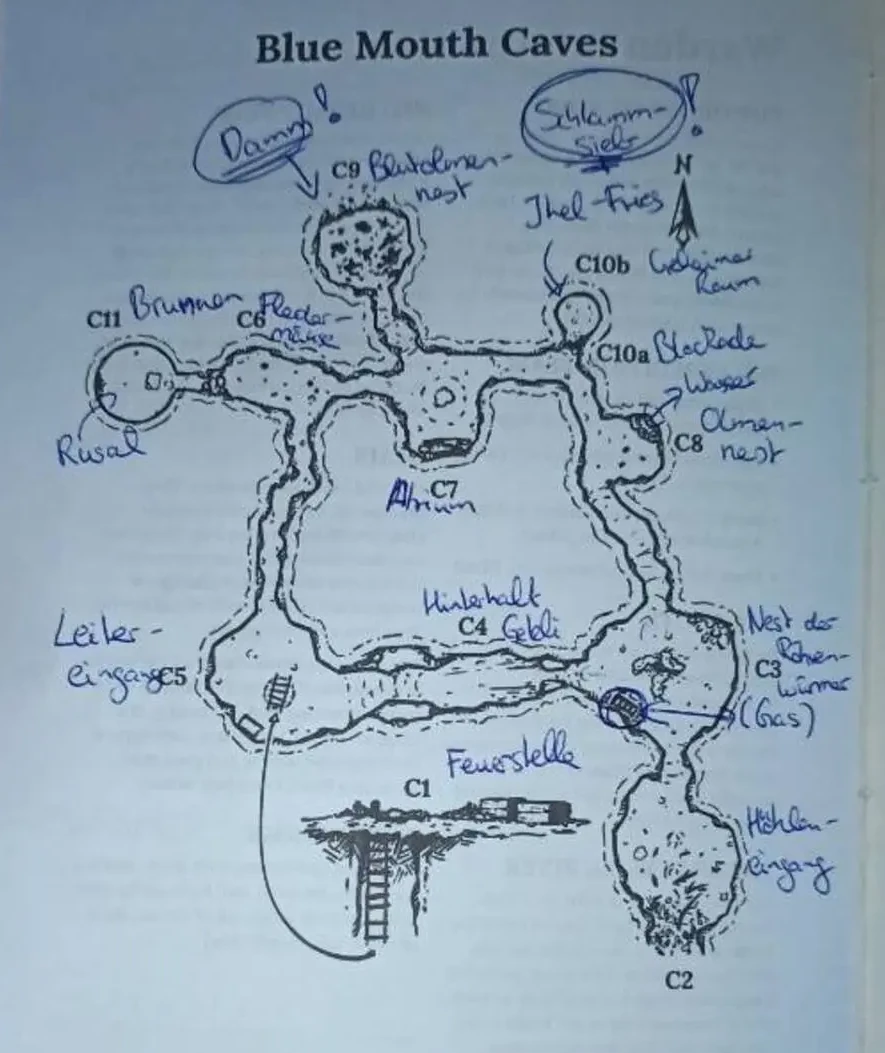 Blue Mouth Caves
Damm!
Schlamm-
sieb!
C9 Blutolmen-
nest
N
Jhel-Fries
C10b Geheimer
Raum
C11 Brunnen
C6 Fleder-
mäuse
C10a Blockade
Wasser
C8 Olmen-
nest
Rusal
C7
Atrium
Hinterhalt
C4 Gebli
Leiter-
eingang C5
Nest der
C3 Röhren-
würmer
(Gas)
Feuerstelle
C1
Höhlen-
eingang
C2